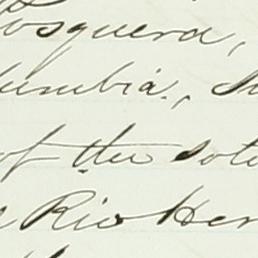 osquera,
lumbia,
of the
Rio Her